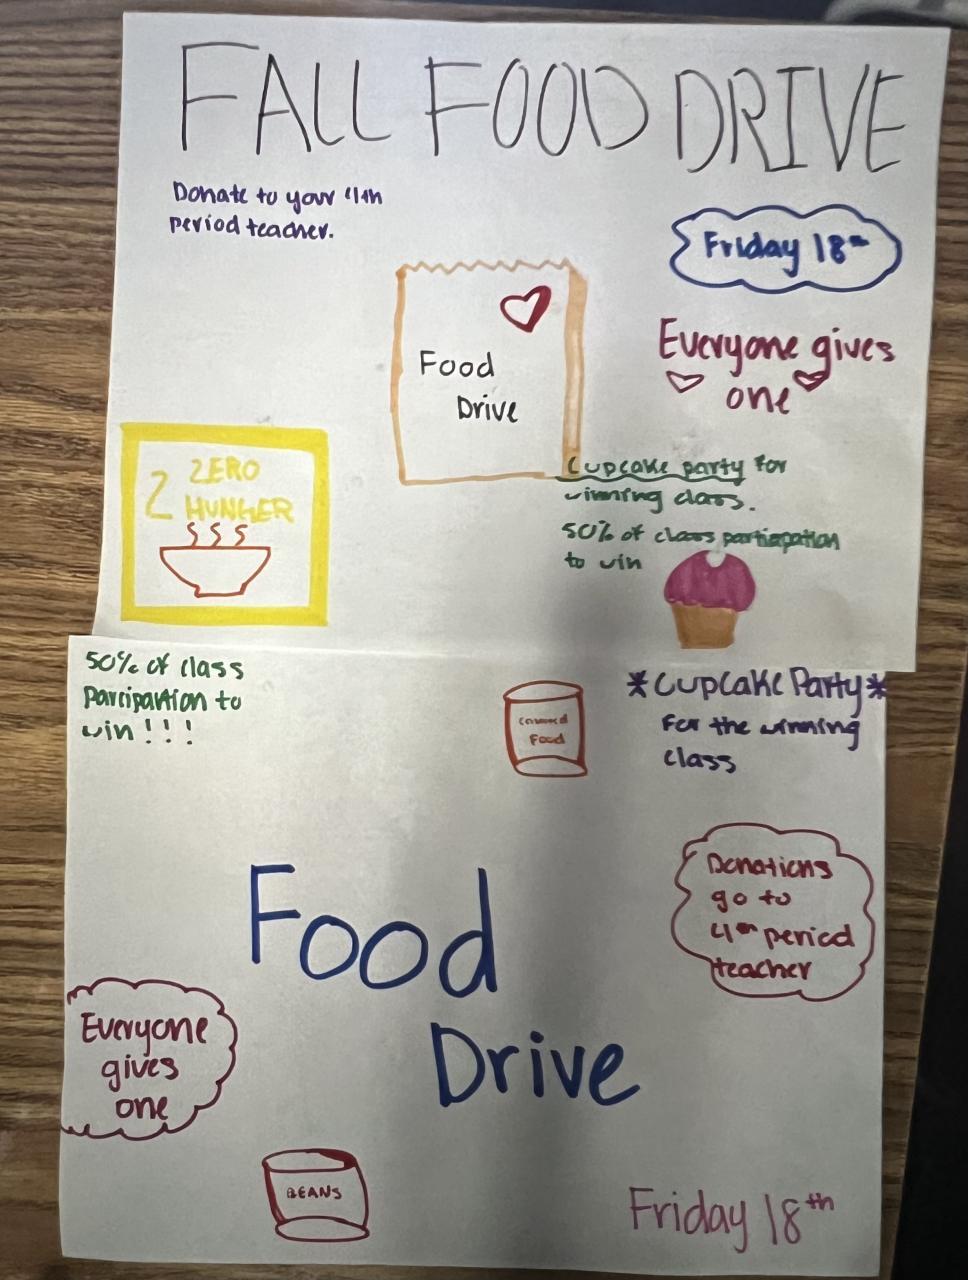 FALL FOOD DRIVE
Donate to your 4th
period teacher.
Friday 18th
Food
Drive
Everyone gives
one
2 ZERO
HUNGER
Cupcake party for
winning class.
50% of class participation
to win
50% of class
Parcipantion to
win!!!
Canned
Food
*Cupcake Party*
For the winning
class
Donations
go to
4th period
teacher
Food
Drive
Everyone
gives
one
BEANS
Friday 18th